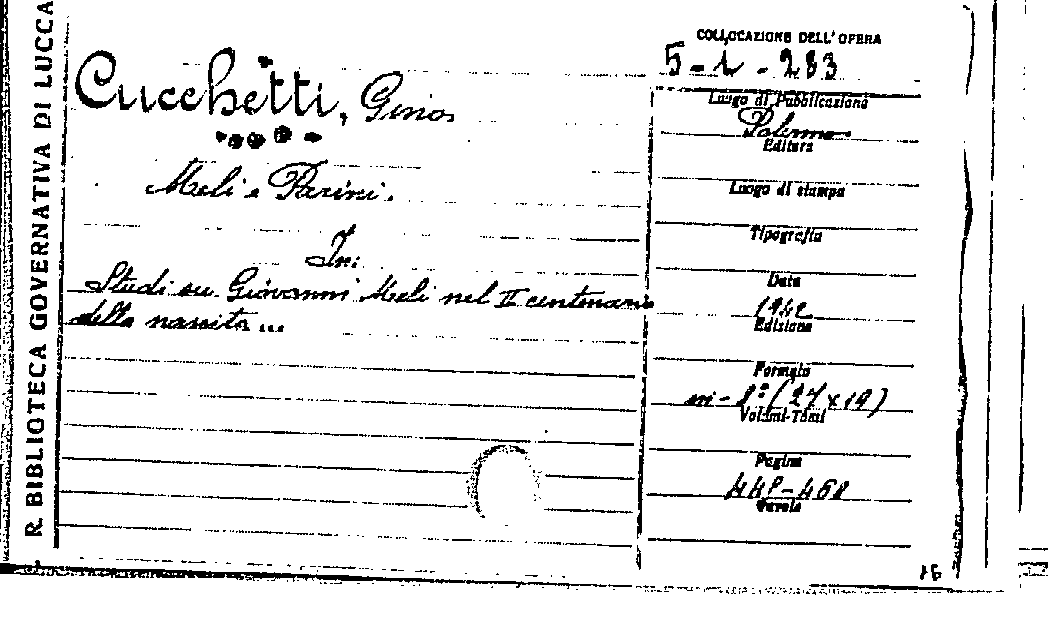 R. BIBLIOTECA GOVERNATIVA DI LUCCA
COLLOCAZIONE DELL'OPERA
5-1-283
Cucchetti, Gino
Meli e Parini.
In:
Studi su Giovanni Meli nel II centenario
della nascita...
Luogo di Pubblicazione
Palermo
Editore
Luogo di stampa
Tipografia
Data
1942
Edizione
Formato
in-8º (27x19)
Volumi-Tomi
Pagine
Tavole